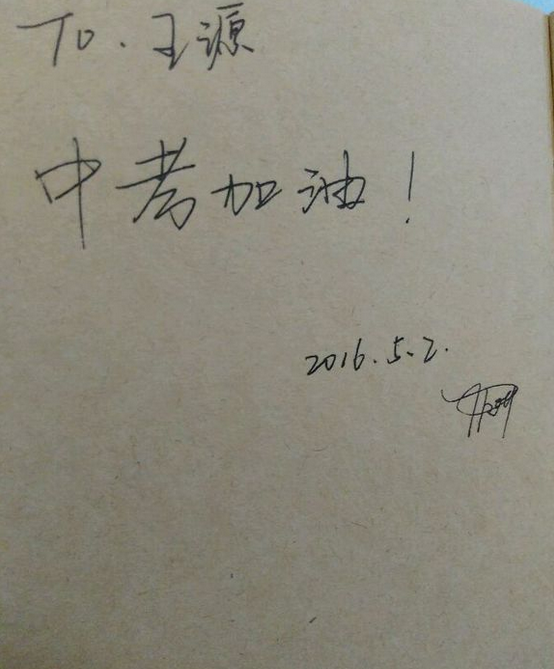 To.王源
中考加油!
2016.5.2.